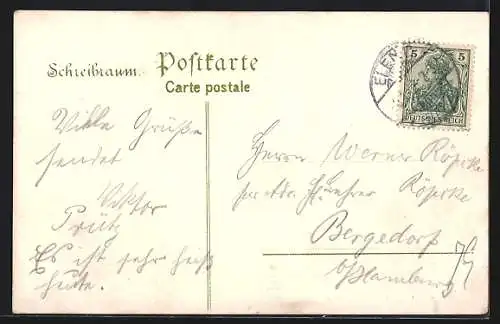 Schreibraum.
Postkarte
Carte postale
5 5
DEUTSCHES REICH
Viele Grüße
sendet
Viktor
Prütz
Es ist sehr heiß
heute.
Herrn Werner Röpke
per Adr. Lehrer Röpke
Bergedorf
b/Hamburg